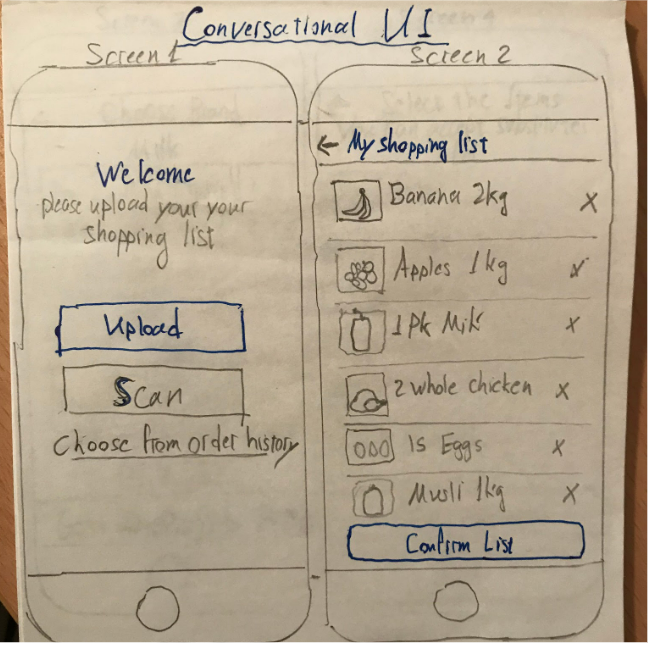 Conversational UI
Screen 1
Welcome
please upload your your
shopping list
Upload
Scan
Choose from order history
Screen 2
← My shopping list
Banana 2kg X
Apples 1kg X
1 Pk Milk X
2 whole chicken X
15 Eggs X
Musli 1kg X
Confirm List